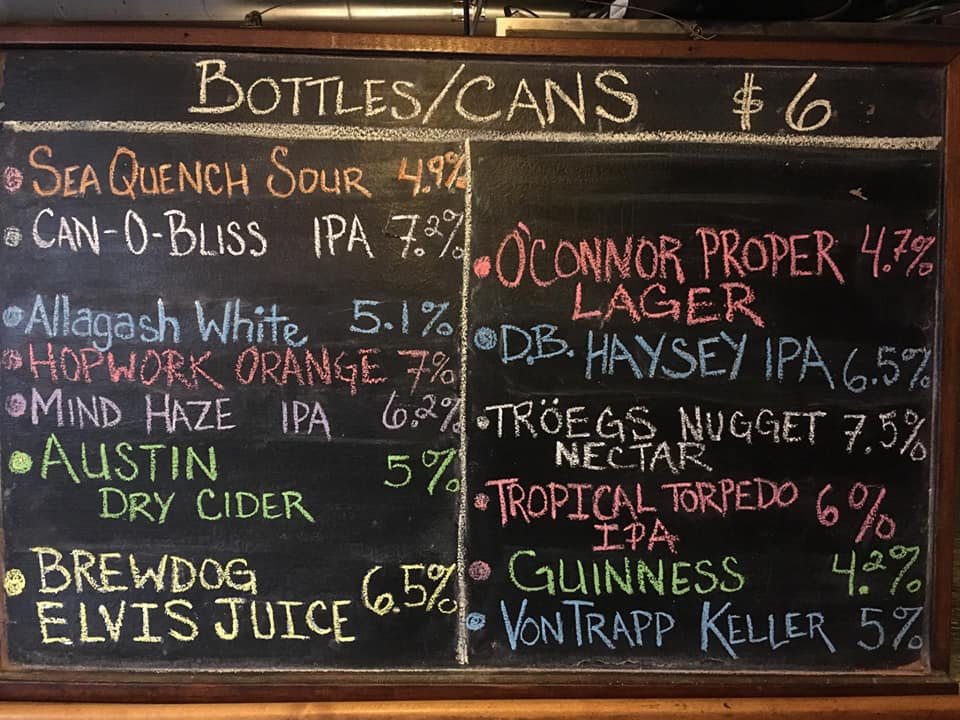 BOTTLES/CANS $6
SEA QUENCH SOUR 4.9%
CAN-O-BLISS IPA 7.2%
Allagash White 5.1%
HOPWORK ORANGE 7%
MIND HAZE IPA 6.2%
AUSTIN 5%
DRY CIDER
BREWDOG 6.5%
ELVIS JUICE
O'CONNOR PROPER 4.7%
LAGER
D.B. HAYSEY IPA 6.5%
TRÖEGS NUGGET 7.5%
NECTAR
TROPICAL TORPEDO 6%
IPA
GUINNESS 4.2%
VONTRAPP KELLER 5%